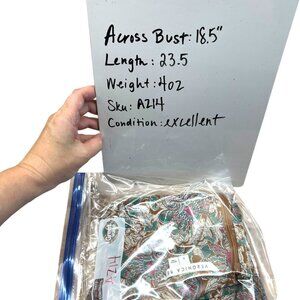 Across Bust: 18.5"
Length: 23.5
Weight: 4oz
Sku: AZ14
Condition: excellent
AZ14
VERONICA